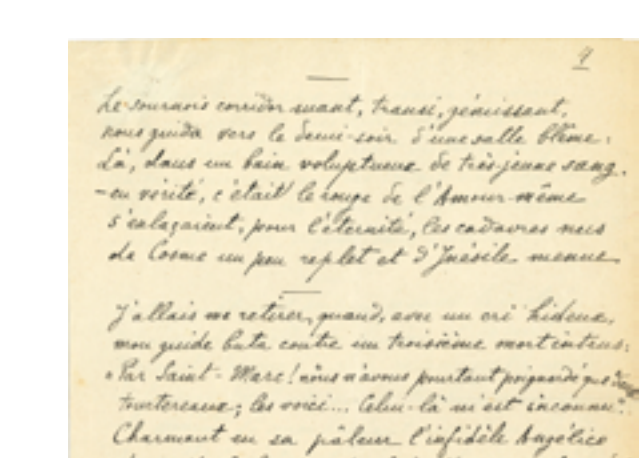 4
Le sournois corridor suant, transi, gémissant,
nous guida vers le demi-soir d'une salle blême.
Là, dans un bain voluptueux de très-jeune sang.
– en vérité, c'était le rouge de l'Amour même
s'enlaçaient, pour l'éternité, les cadavres nus
de Cosme un peu replet et d'Inésile menue.
J'allais me retirer, quand, avec un cri hideux,
mon guide buta contre un troisième mort intrus:
"Par Saint-Marc! nous n'avons pourtant poignardé que deux
tourtereaux; les voici... Celui-là m'est inconnu".
Charmant en sa pâleur l'infidèle Angélico